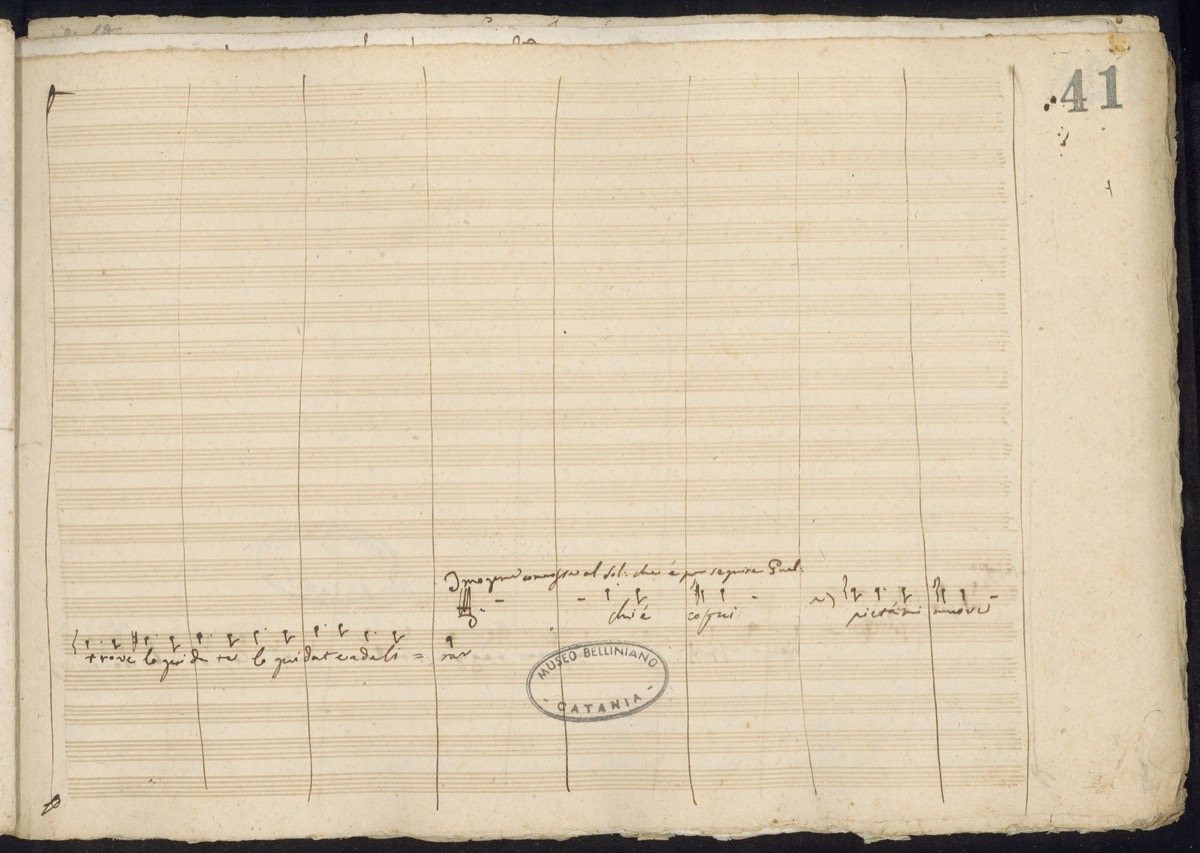 41
Imogene commossa al Sol: che é per seguire Gual:
chi é costui
pietá mi muove
trove lo guida te lo guidate ad ali =
rar
MUSEO BELLINIANO
- CATANIA -